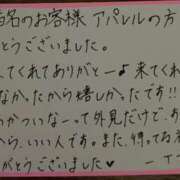 名のお客様 アパレルの方
とうございました。
来てくれてありがとー♪来てくれ
なかったから嬉しかったです!!
かつ なーいって外見だけど、あ
っぱ、いい人です。また、待ってお
がとうございました♥